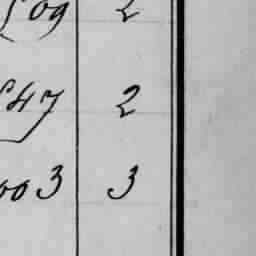 09 2
47 2
003 3